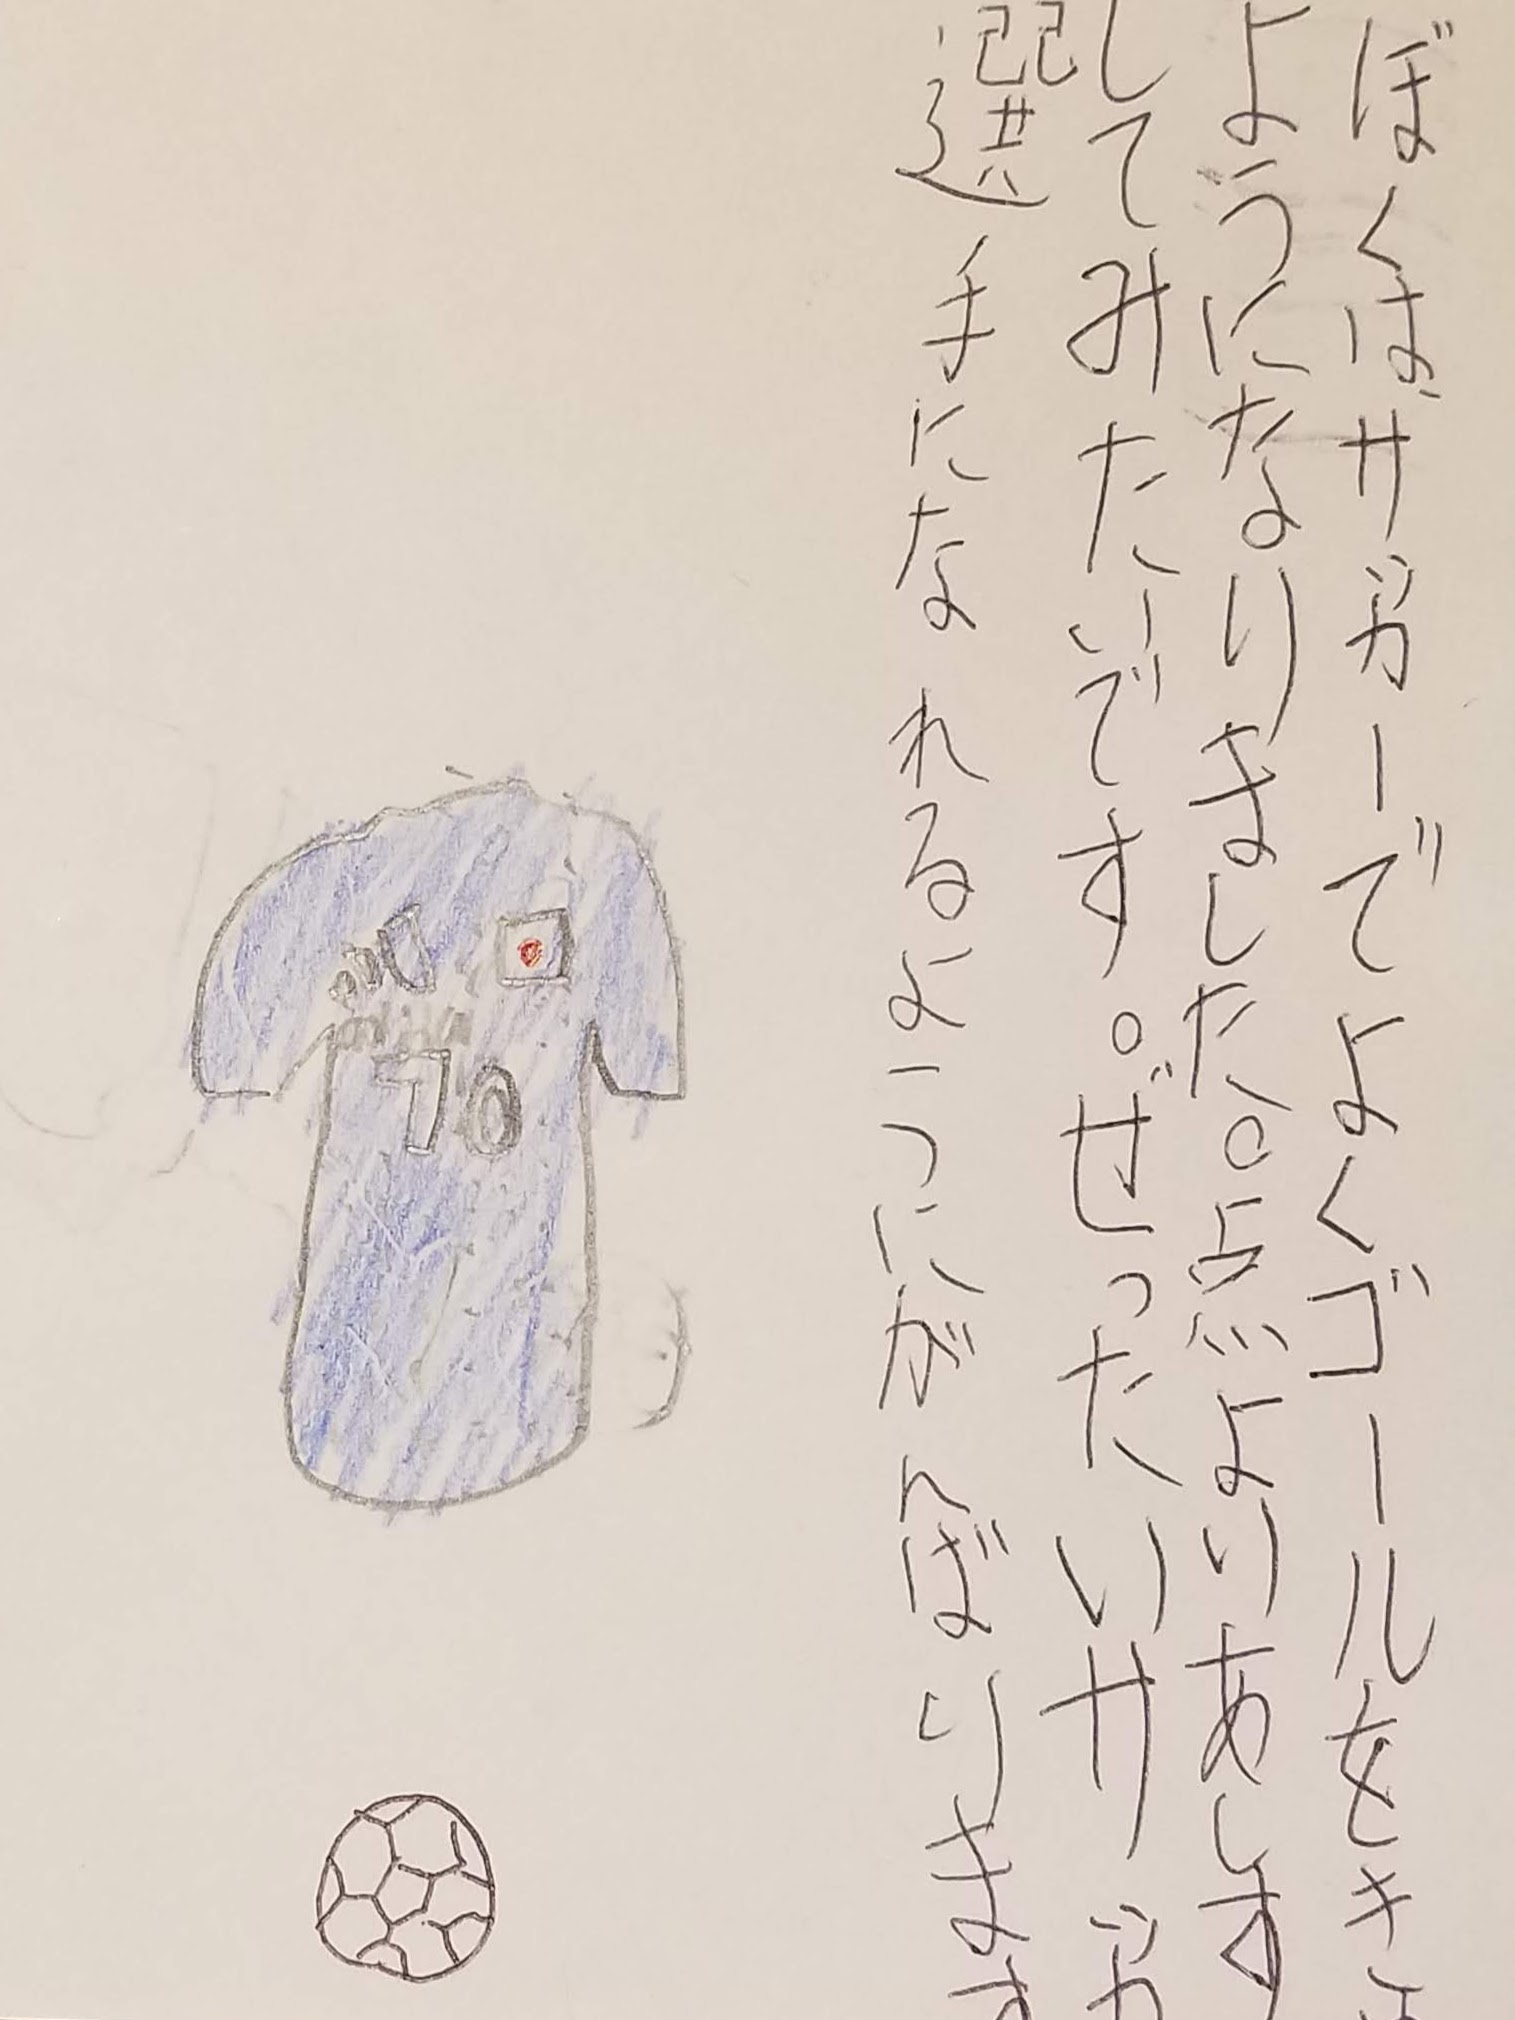 ぼくはサッカーでよくゴールをき
ようになりました。点よりあし
してみたいです。ぜったいサッカ
選手になれるようにがんばります
10